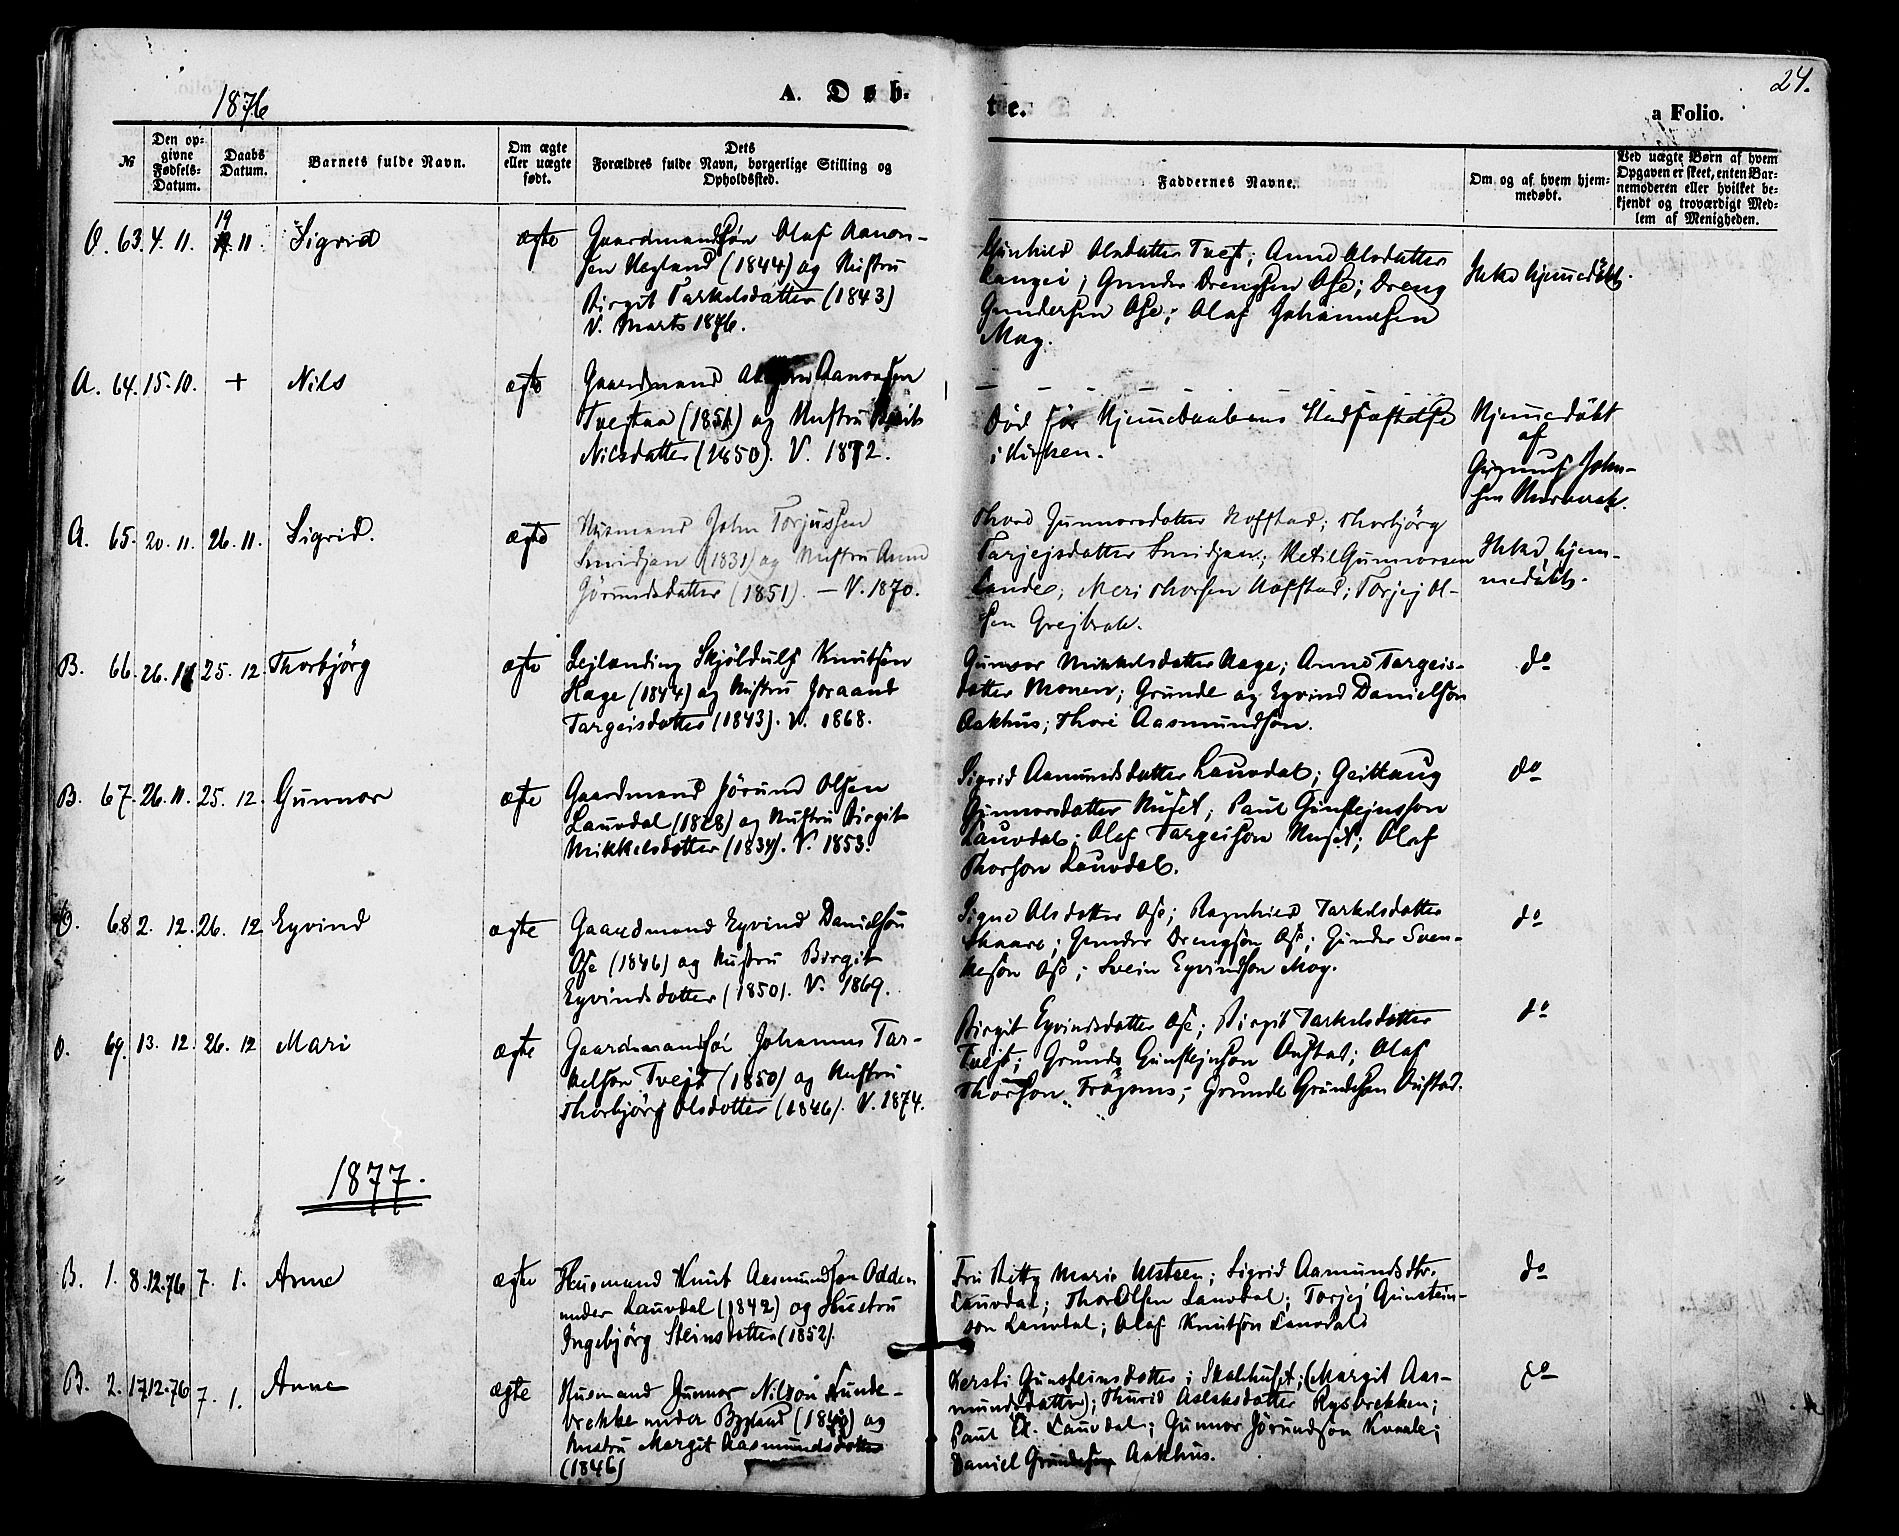 24.
1876
A. Døb-
te.
a Folio.
№
Den op-
givne
Fødsels-
Datum.
Daabs
Datum.
Barnets fulde Navn.
Om ægte
eller uægte
født.
Dets
Forældres fulde Navn, borgerlige Stilling og
Opholdssted.
Faddernes Navne.
Om og af hvem hjem-
medøbt.
Ved uægte Børn af hvem
Opgaven er skeet, enten Bar-
nemoderen eller hvilket be-
kjendt og troværdigt Med-
lem af Menigheden.
O. 63. 4. 11. 19 11. Sigrid ægte
Gaardmandssön Olaf Aanon-
sen (1844) og Hustru
Birgit Tarkelsdatter (1843)
V. Marts 1876.
Gunhild Olsdatter Tvejt; Anne Olsdatter
Langei; Gunder Drengsen Ose; Dreng
Gundersen Ose; Olaf Johannesen
Moy.
Ikke hjemedöbt.
A. 64. 15. 10. + Nils ægte
Gaardmand Aanonsen
(1851) og Hustru
Nilsdatter (1850). V. 1872.
Död för Hjemedaabens Stadfæstelse
i Kirken.
Hjemedöbt
af
John-
sen
A. 65. 20. 11. 26. 11. Sigrid. ægte
Husmand John Torjussen
Smidjan (1831) og Hustru Anne
Görundsdatter (1851). — V. 1870.
Thore Gunnorsdatter Hoffstad; Thorbjörg
Tarjejsdatter Smidjan; Ketil Gunnorsen
Landee; Meri Thorsen Hoffstad; Torjej Ol-
sen Grejbrok.
Ikke hjem-
medöbt.
B. 66. 26. 11 25. 12. Thorbjörg ægte
Lejlænding Skjöldulf Knutsen
Hage (1844) og Hustru Joraand
Targeisdatter (1843). V. 1868.
Gunvor Mikkelsdatter Hage; Anne Targeis-
datter Monen; Grunde og Eyvind Danielson
Aakhus; Thore Aasmundson.
do
B. 67. 26. 11. 25. 12. Gunnor ægte
Gaardmand Jörund Olsen
Lauvdal (1828) og Hustru Birgit
Mikkelsdatter (1834). V. 1853.
Sigrid Aamundsdatter Lauvdal;
Gunnorsdatter; Paul Gunstejnsson
Lauvdal; Olaf Targeison; Olaf
Thorson Lauvdal.
do
O. 68. 2. 12. 26. 12 Eyvind ægte
Gaardmand Eyvind Danielson
Ose (1846) og Hustru Birgit
Eyvindsdatter (1850). V. 1869.
Signe Olsdatter Ose; Ragnhild Tarkelsdatter
Skaare; Gunder Drengson Ose; Gunder Sven-
keson Ose; Svein Eyvindson Moy.
do
O. 69. 13. 12. 26. 12 Mari ægte
Gaardmandssön Johannes Tar-
kelson Tvejt (1850) og Hustru
Thorbjörg Olsdatter (1846). V. 1874.
Birgit Eyvindsdatter Ose; Birgit Tarkelsdatter
Tvejt; Grunde Gunstejnson Austad; Olaf
Thorson Fröysnes; Grunde Grundesen Austad.
do
1877.
B. 1. 8. 12. 76 7. 1. Anne ægte
Husmand Knut Aasmundson Odden
under Lauvdal (1842) og Hustru
Ingebjörg Steinsdatter (1852).
Fru Betty Marie; Sigrid Aamundsdtr.
Lauvdal; Thor Olsen Lauvdal; Torjej Gunstein-
son Lauvdal; Olaf Knutson Lauvdal
do
B. 2. 17. 12. 76 7. 1. Anne ægte
Husmand Gunnor Nilson Lunde-
brekke under Bygland og
Hustru Margit Aasmundsdatter
(1846)
Kersti Gunsteinsdatter; (Margit Aas-
mundsdatter); Thurid Aslaksdatter Rysbrekken;
Paul Lauvdal; Gunnor Jörundson Kvaale;
Daniel Grundesen Aakhus.
do